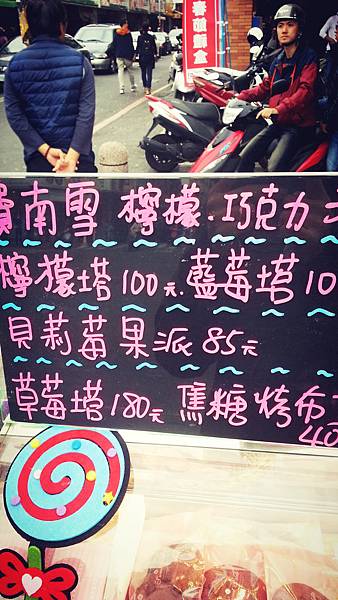 南雪 檸檬.巧克力
檸檬塔100元.藍莓塔10
貝莉莓果派85元
草莓塔180元 焦糖烤布
40